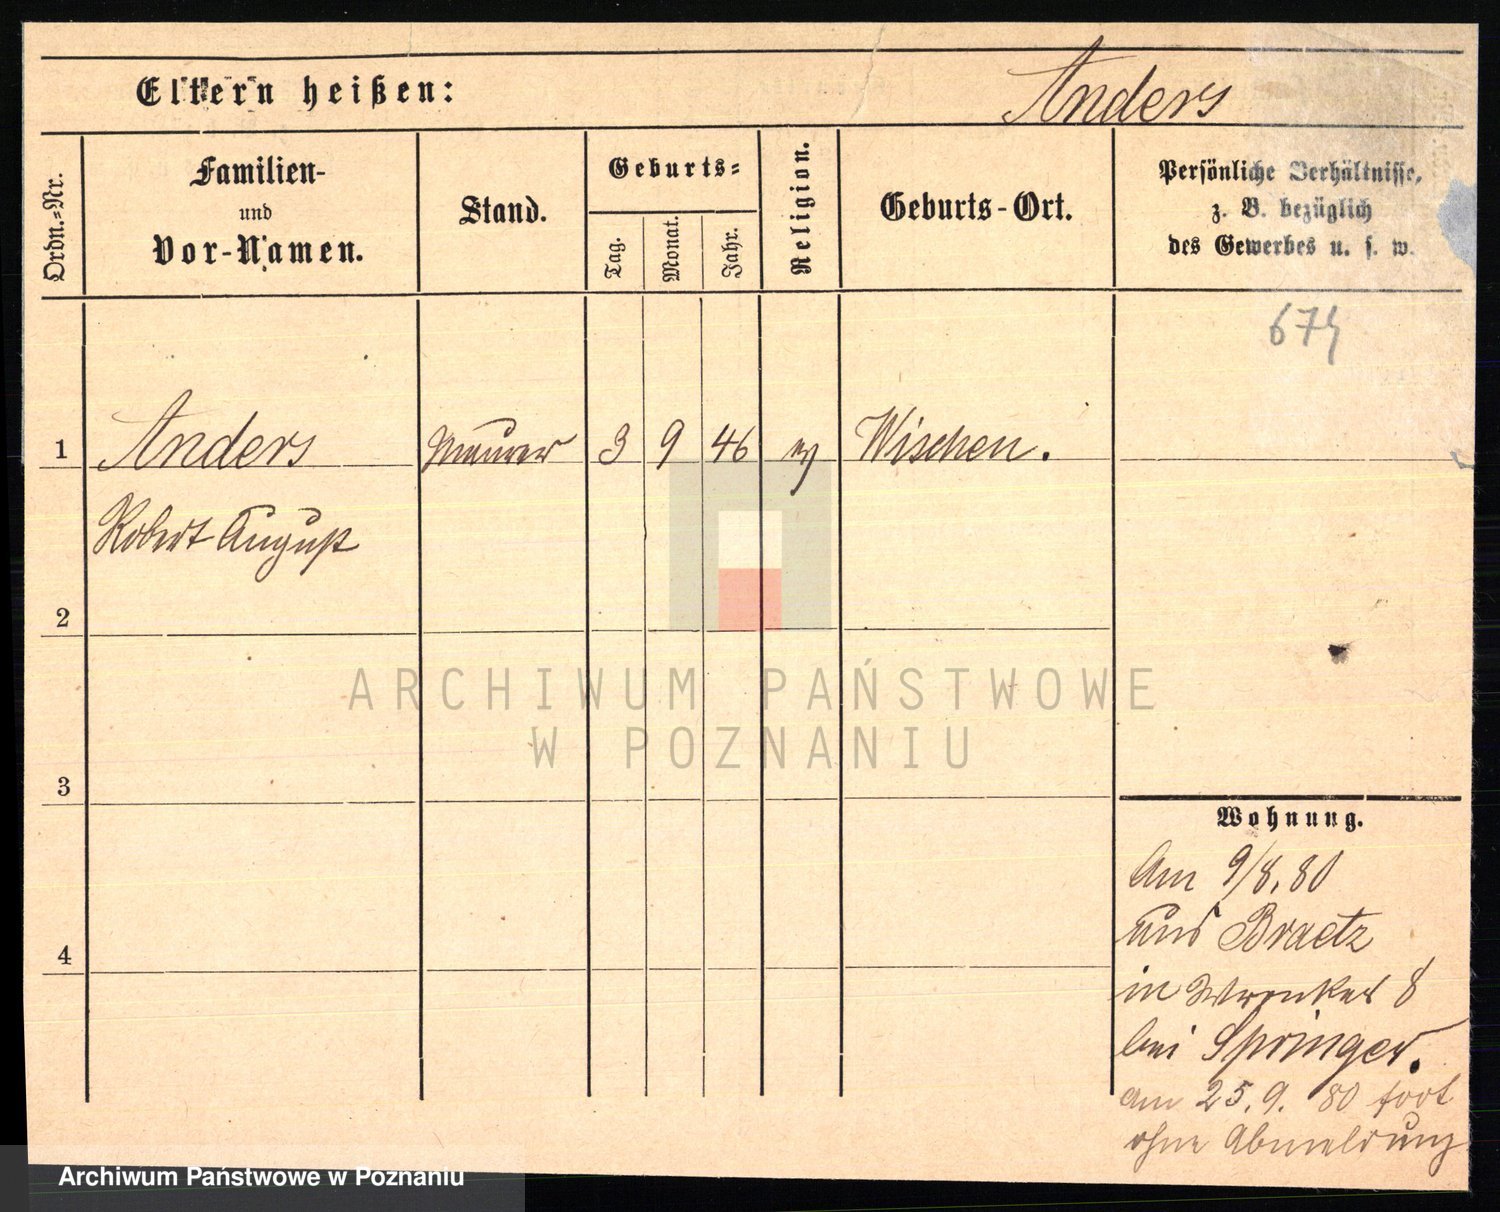 Eltern heißen:
Anders
Ordn.=Nr.
Familien-
und
Vor-Namen.
Stand.
Geburts=
Tag.
Monat.
Jahr.
Religion.
Geburts-Ort.
Persönliche Verhältnisse,
z. B. bezüglich
des Gewerbes u. s. w.
1
Anders
Maurer
3
9
46
ev
Wischen.
Robert August
2
ARCHIWUM PAŃSTWOWE
W POZNANIU
3
4
Wohnung.
Am 9/8. 80
aus Braetz
in Wronker 8
bei Springer.
am 25. 9. 80 fort
ohne Abmeldung
Archiwum Państwowe w Poznaniu